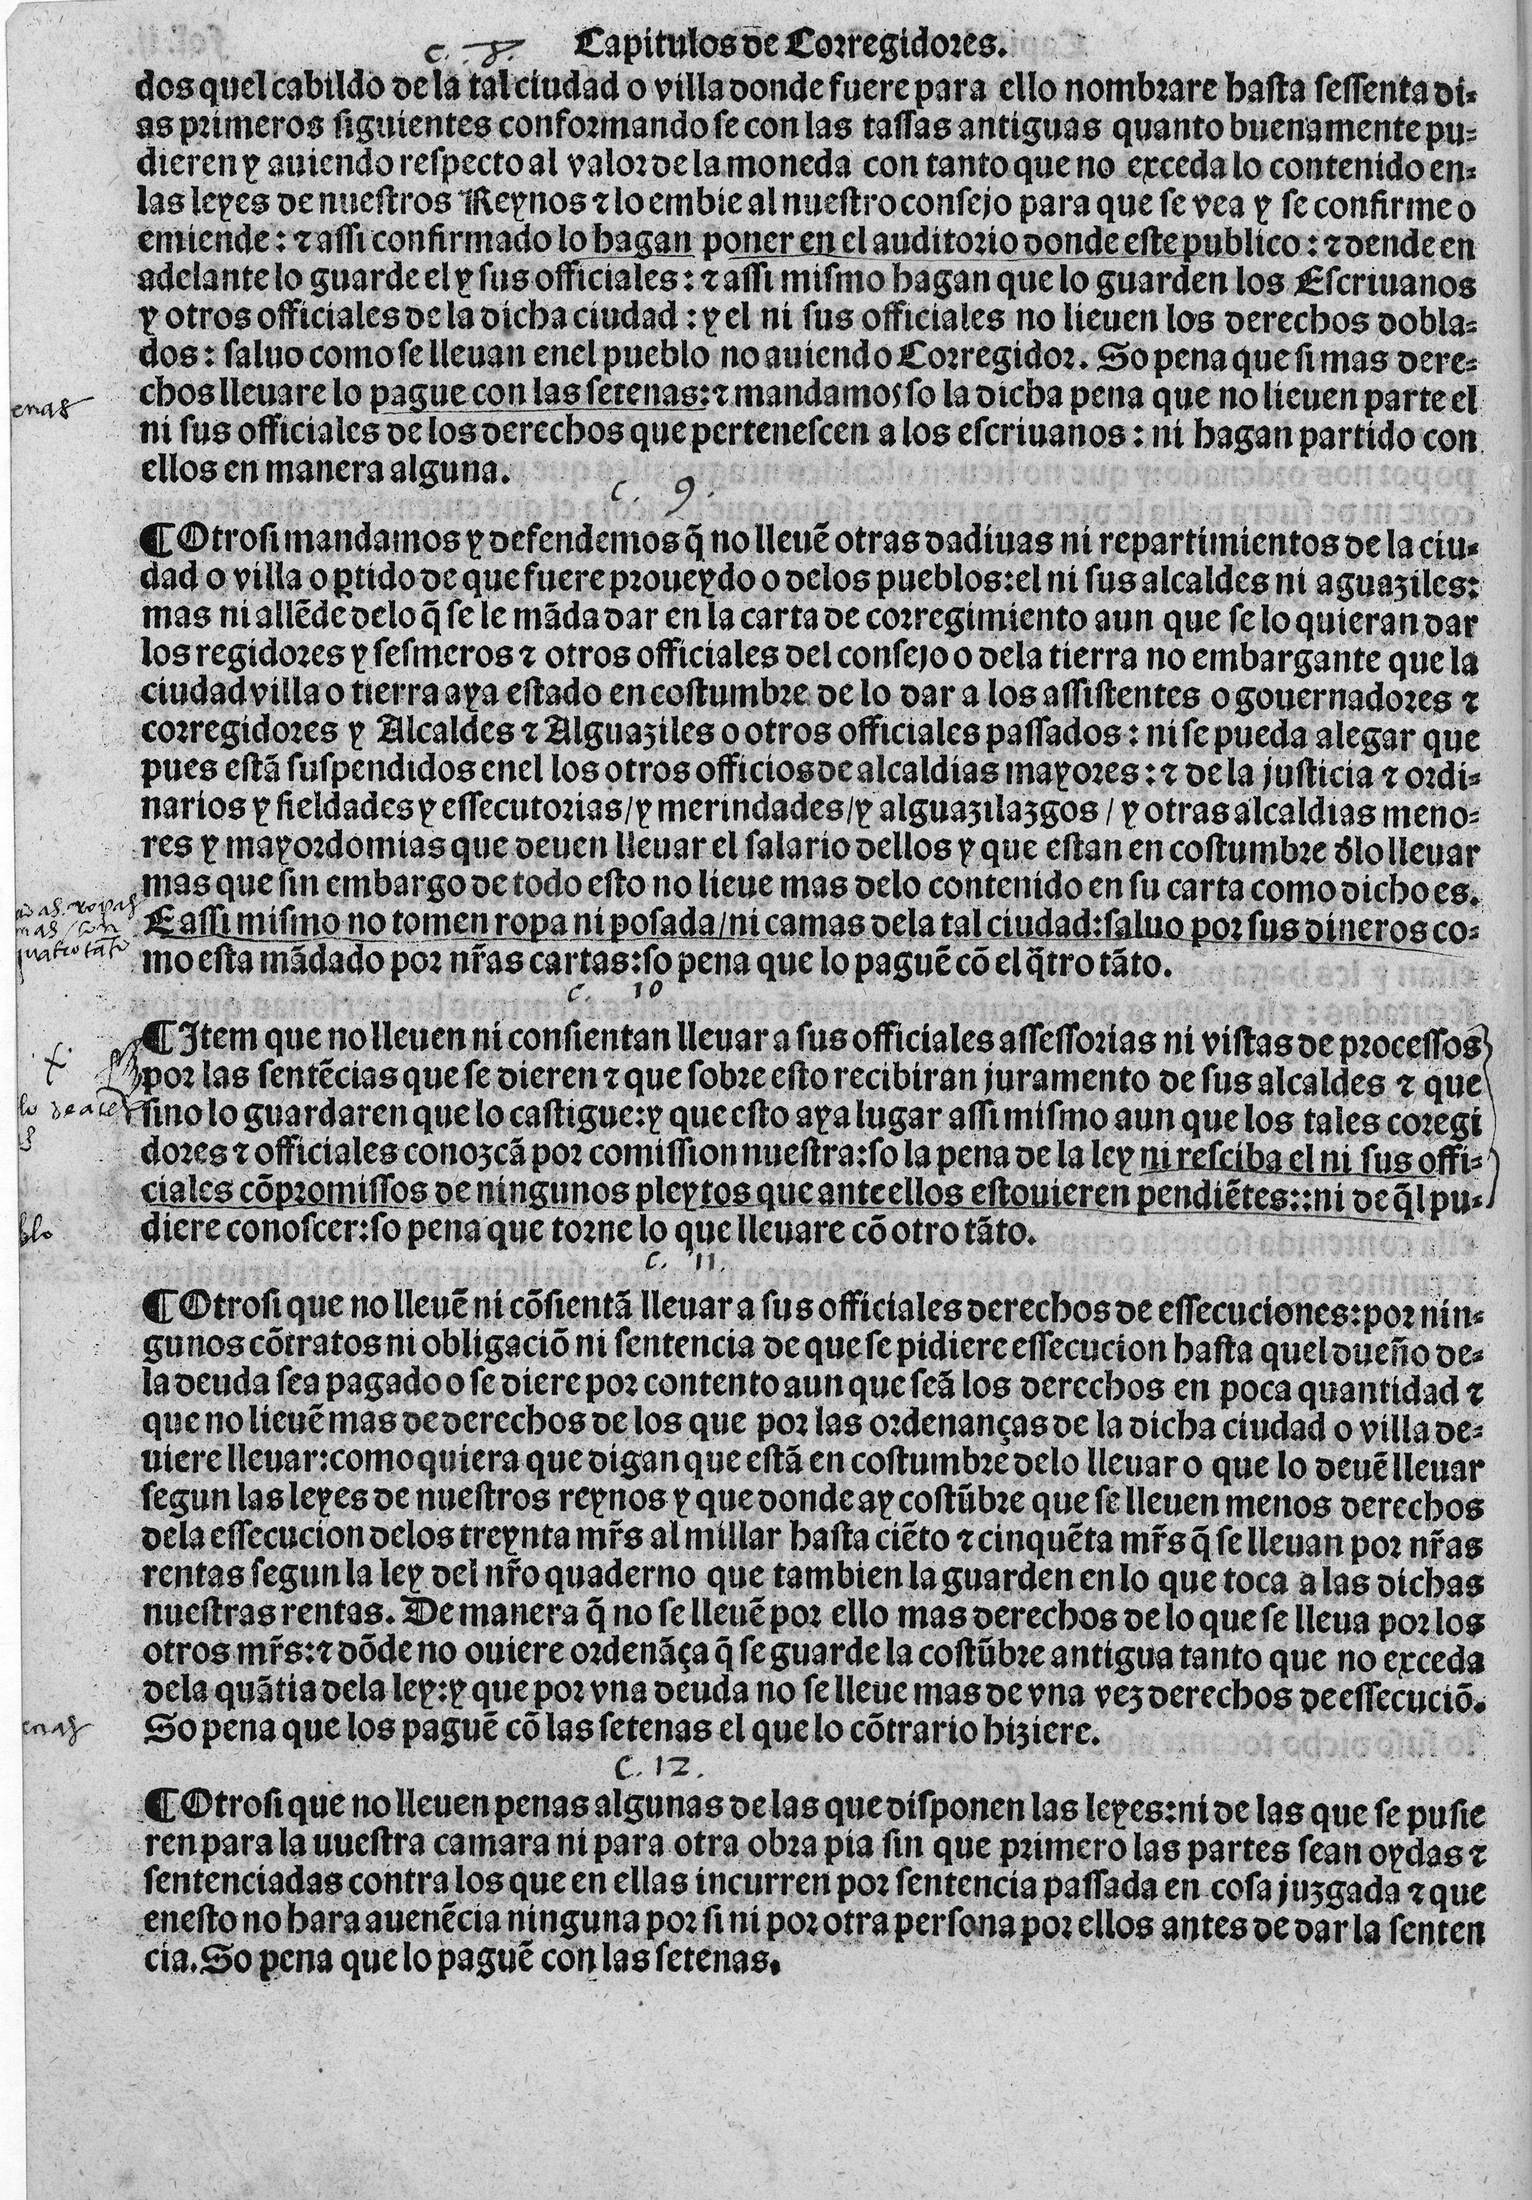 Capitulos de Corregidores.
c. 8.
dos quel cabildo de la tal ciudad o villa donde fuere para ello nombrare hasta sessenta di-
as primeros siguientes conformando se con las tassas antiguas quanto buenamente pu-
dieren y auiendo respecto al valor de la moneda con tanto que no exceda lo contenido en-
las leyes de nuestros Reynos ⁊ lo embie al nuestro consejo para que se vea y se confirme o
emiende: ⁊ assi confirmado lo hagan poner en el auditorio donde este publico: ⁊ dende en
adelante lo guarde el y sus officiales: ⁊ assi mismo hagan que lo guarden los Escriuanos
y otros officiales de la dicha ciudad: y el ni sus officiales no lieuen los derechos dobla-
dos: saluo como se lleuan enel pueblo no auiendo Corregidor. So pena que si mas dere-
chos lleuare lo pague con las setenas: ⁊ mandamos so la dicha pena que no lieuen parte el
enas
ni sus officiales de los derechos que pertenescen a los escriuanos: ni hagan partido con
ellos en manera alguna.
c. 9.
¶ Otrosi mandamos y defendemos q̄ no lleuē otras dadiuas ni repartimientos de la ciu-
dad o villa o ꝑtido de que fuere proueydo o delos pueblos: el ni sus alcaldes ni aguaziles:
mas ni allēde delo q̄ se le māda dar en la carta de corregimiento aun que se lo quieran dar
los regidores y sesmeros ⁊ otros officiales del consejo o dela tierra no embargante que la
ciudad villa o tierra aya estado en costumbre de lo dar a los assistentes o gouernadores ⁊
corregidores y Alcaldes ⁊ Alguaziles o otros officiales passados: ni se pueda alegar que
pues estā suspendidos enel los otros officios de alcaldias mayores: ⁊ de la justicia ⁊ ordi-
narios y fieldades y essecutorias/ y merindades/ y alguazilazgos / y otras alcaldias meno-
res y mayordomias que deuen lleuar el salario dellos y que estan en costumbre d̄lo lleuar
mas que sin embargo de todo esto no lieue mas delo contenido en su carta como dicho es.
E assi mismo no tomen ropa ni posada/ ni camas dela tal ciudad: saluo por sus dineros co-
mo esta mādado por nr̄as cartas: so pena que lo paguē cō el q̄tro tāto.
c. 10
¶ Item que no lleuen ni consientan lleuar a sus officiales assessorias ni vistas de processos
por las sentēcias que se dieren ⁊ que sobre esto recibiran juramento de sus alcaldes ⁊ que
sino lo guardaren que lo castigue: y que esto aya lugar assi mismo aun que los tales coregi
dores ⁊ officiales conozcā por comission nuestra: so la pena de la ley ni resciba el ni sus offi-
ciales cōpromissos de ningunos pleytos que ante ellos estouieren pendiētes:: ni de q̄l pu-
diere conoscer: so pena que torne lo que lleuare cō otro tāto.
c. 11.
¶ Otrosi que no lleuē ni cōsientā lleuar a sus officiales derechos de essecuciones: por nin-
gunos cōtratos ni obligaciō ni sentencia de que se pidiere essecucion hasta quel dueño de-
la deuda sea pagado o se diere por contento aun que seā los derechos en poca quantidad ⁊
que no lieuē mas de derechos de los que por las ordenanças de la dicha ciudad o villa de-
uiere lleuar: como quiera que digan que estā en costumbre delo lleuar o que lo deuē lleuar
segun las leyes de nuestros reynos y que donde ay costūbre que se lleuen menos derechos
dela essecucion delos treynta mr̄s al millar hasta ciēto ⁊ cinquēta mr̄s q̄ se lleuan por nr̄as
rentas segun la ley del nr̄o quaderno que tambien la guarden en lo que toca a las dichas
nuestras rentas. De manera q̄ no se lleuē por ello mas derechos de lo que se lleua por los
otros mr̄s: ⁊ dōde no ouiere ordenāça q̄ se guarde la costūbre antigua tanto que no exceda
dela quātia dela ley: y que por vna deuda no se lleue mas de vna vez derechos de essecuciō.
So pena que los paguē cō las setenas el que lo cōtrario hiziere.
enas
c. 12.
¶ Otrosi que no lleuen penas algunas de las que disponen las leyes: ni de las que se pusie
ren para la uuestra camara ni para otra obra pia sin que primero las partes sean oydas ⁊
sentenciadas contra los que en ellas incurren por sentencia passada en cosa juzgada ⁊ que
enesto no hara auenēcia ninguna por si ni por otra persona por ellos antes de dar la senten
cia. So pena que lo paguē con las setenas.